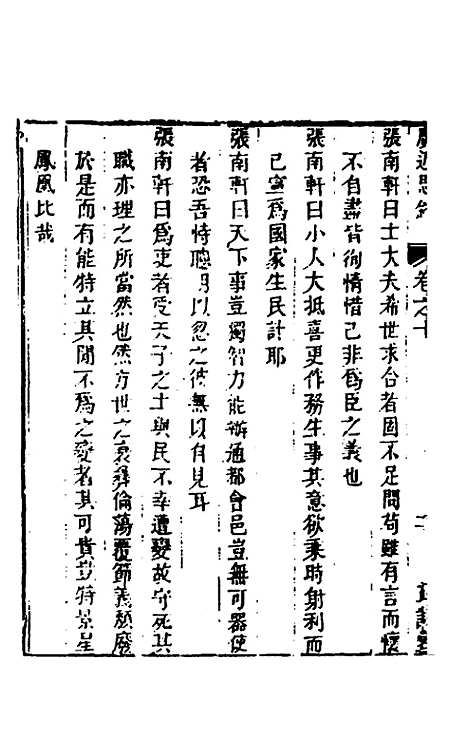 廣近思錄 卷之十
張南軒曰士大夫希世求合者固不足問苟雖有言而懷
不自盡皆徇情惜己非爲臣之義也
張南軒曰小人大抵喜更作務生事其意欲乘時射利而
已寧爲國家生民計耶
張南軒曰天下事豈獨智力能辦通都會邑豈無可器使
者恐吾恃聰明以忽之彼無以自見耳
張南軒曰爲吏者受天子之土與民不幸遭變故守死其
職亦理之所當然也然方世之衰彝倫蕩覆節義頹廢
於是而有能特立其間不爲之變者其可貴豈特景星
鳳凰比哉